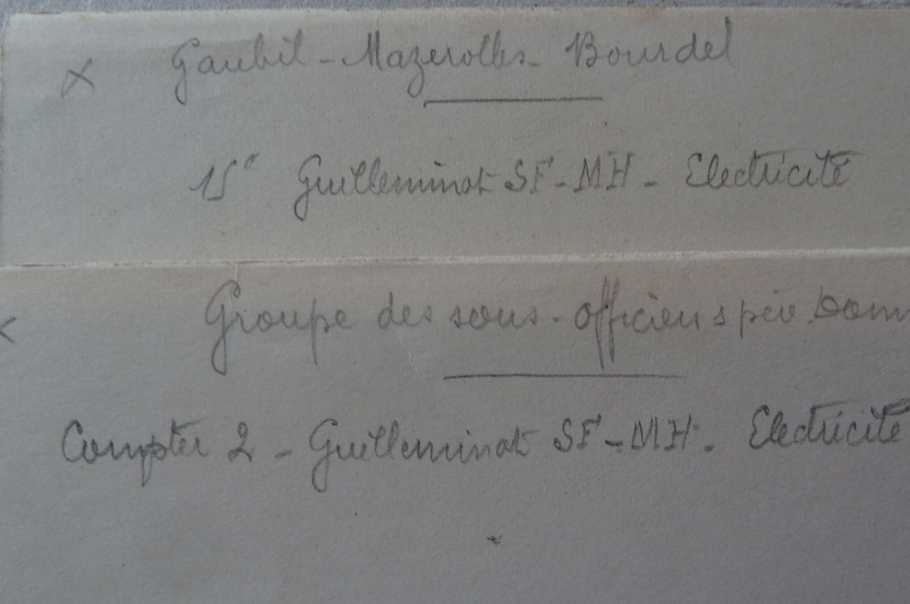 x Gaubil - Mazerolles - Bourdel
15" Guilleminot SF - MH - Electricité
Groupe des sous-officiers
Compter 2 - Guilleminot SF - MH - Electricité